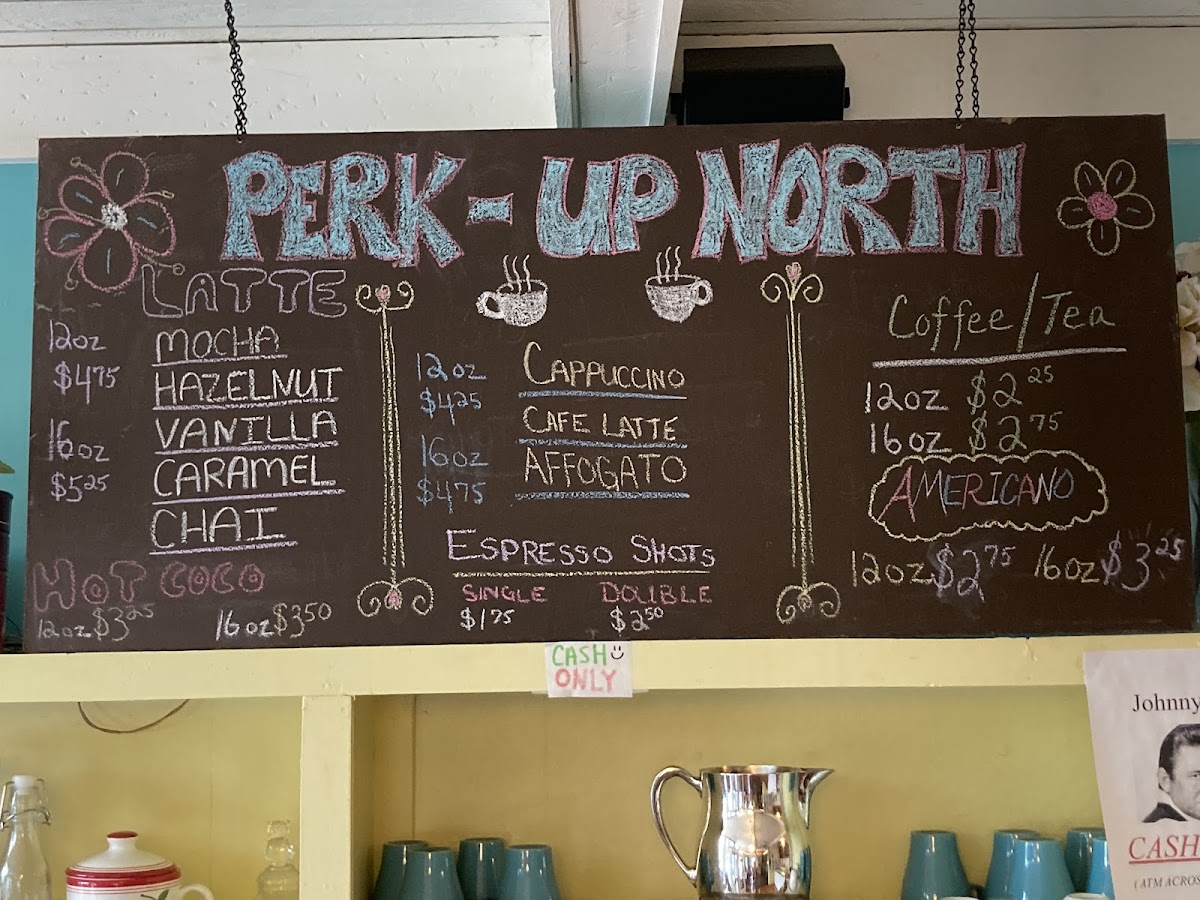 PERK-UP NORTH
LATTE
12oz
$4.75
16oz
$5.25
MOCHA
HAZELNUT
VANILLA
CARAMEL
CHAI
HOT COCO
12oz $3.25 16oz $3.50
12oz
$4.25
16oz
$4.75
CAPPUCCINO
CAFE LATTE
AFFOGATO
ESPRESSO SHOTS
SINGLE DOUBLE
$1.75 $2.50
Coffee/Tea
12oz $2.25
16oz $2.75
AMERICANO
12oz $2.75 16oz $3.25
CASH
ONLY
Johnny
CASH
(ATM ACROS